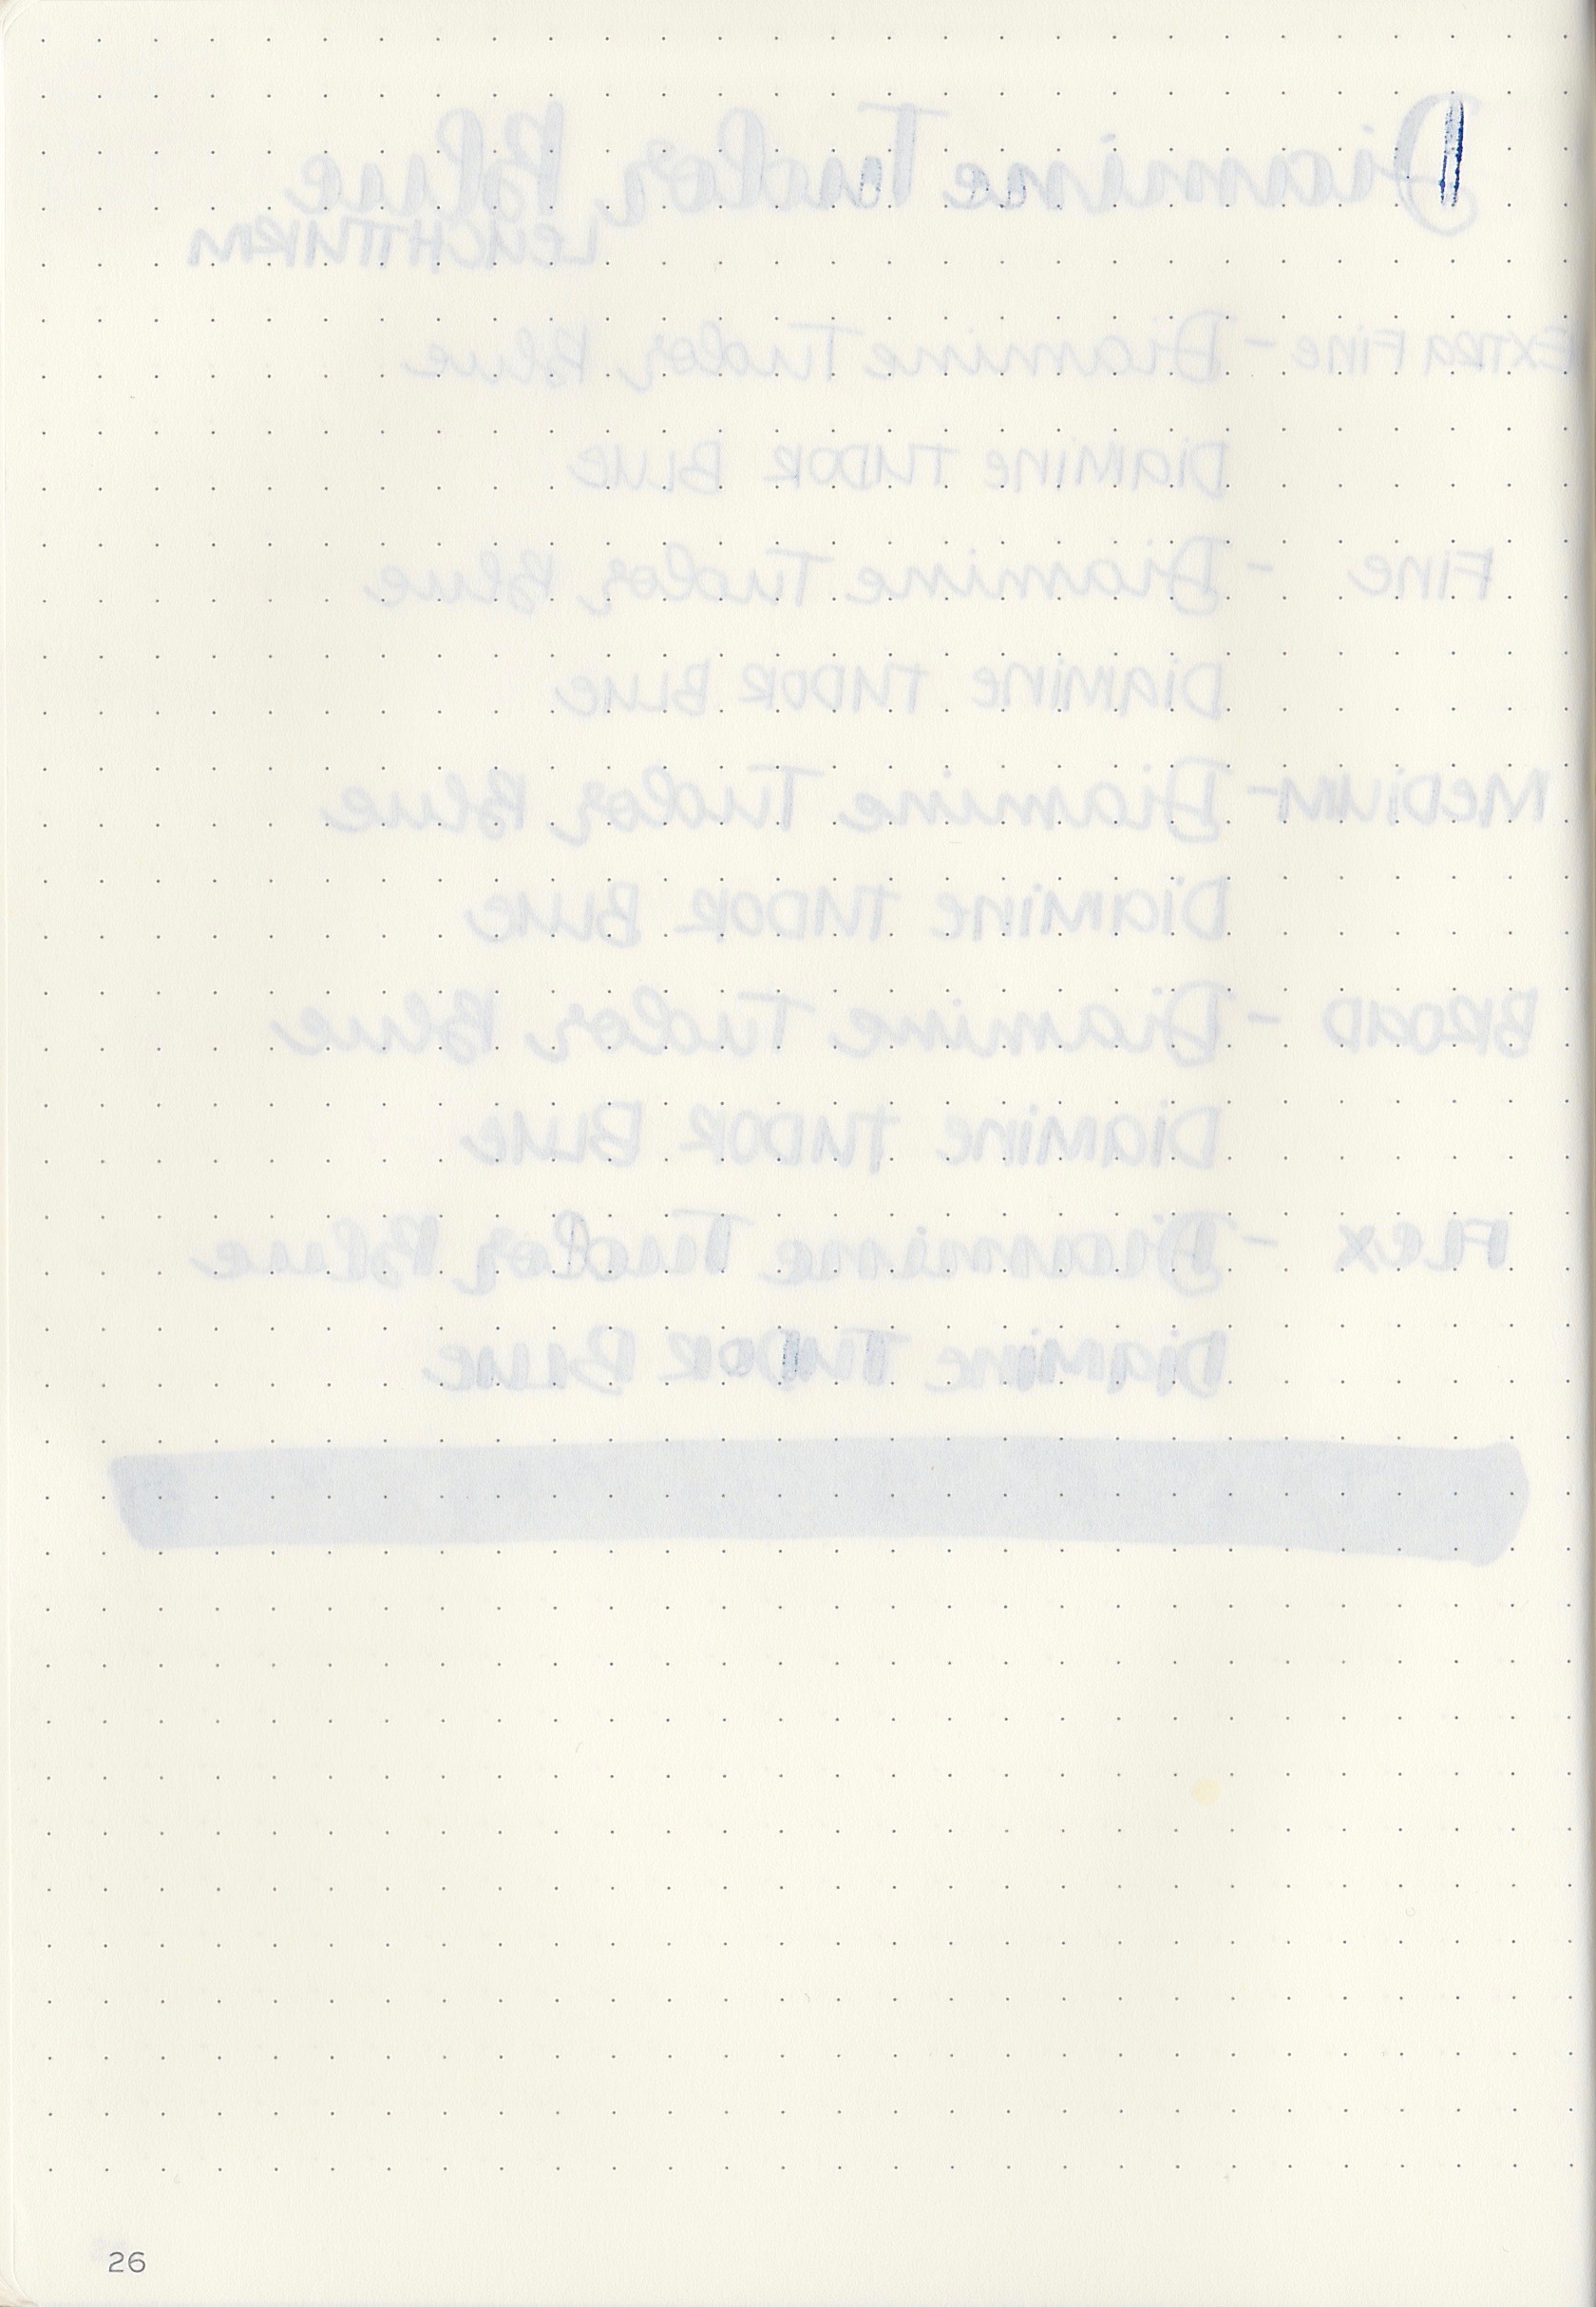 Diamine Tudor Blue
LEUCHTTURM
EXTRA FINE - Diamine Tudor Blue
DiAMiNe TUDOR BLUe
FiNe - Diamine Tudor Blue
DiAMiNe TUDOR BLUe
MeDiUM - Diamine Tudor Blue
DiAMiNe TUDOR BLUe
BROAD - Diamine Tudor Blue
DiAMiNe TUDOR BLUe
FLex - Diamine Tudor Blue
DiAMiNe TUDOR BLUe
26